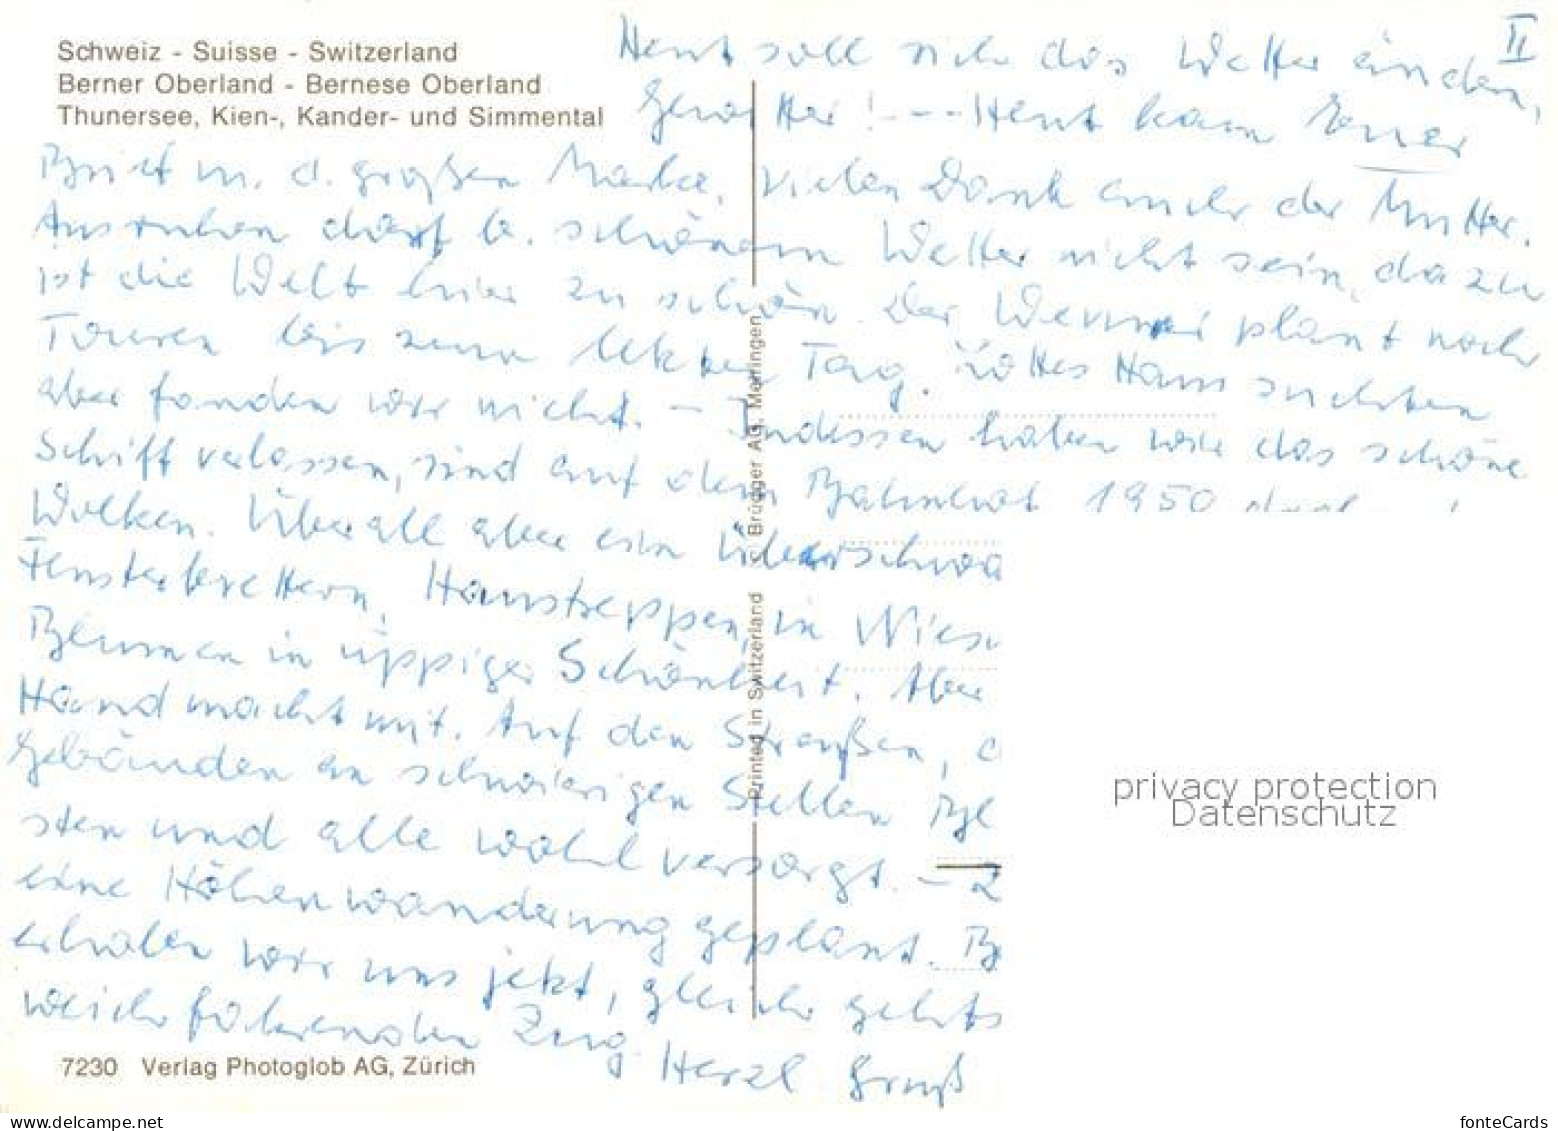 Schweiz - Suisse - Switzerland
Berner Oberland - Bernese Oberland
Thunersee, Kien-, Kander- und Simmental
II
Heut soll sich das Wetter ändern,
Gewitter! --- Heut kam Euer
Brief m. d. großen Marke, vielen Dank auch der Mutter.
Ausruhen darf b. schönem Wetter nicht sein, dazu
ist die Welt hier zu schön. Der Werner plant noch
Touren bis zum letzten Tag. Lottes Haus suchten
aber fanden wir nicht. - Indessen haben wir das schöne
Schiff verlassen, sind auf dem Bahnhof 1950
Wolken. Überall aber ein Überschwa
Fensterbrettern, Haustreppen, in Wies
Blumen in üppiger Schönheit. Aber
Hand macht mit. Auf den Straßen,
Gebäuden an schwierigen Stellen Bl
sten und alle wohl versorgt. -
eine Höhenwanderung geplant. B
erholen wir uns jetzt, gleich gehts
weich fahrenden Zug. Herzl Gruß
Printed in Switzerland © Brügger AG, Meiringen
7230 Verlag Photoglob AG, Zürich
privacy protection
Datenschutz
www.delcampe.net
fonteCards